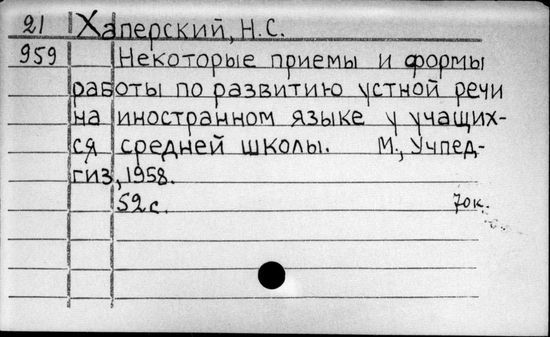 21 Хаперский, Н.С.
959 Некоторые приемы и формы
работы по развитию устной речи
на иностранном языке у учащих-
ся средней школы. М., Учпед-
гиз, 1958.
52 с. 70к.